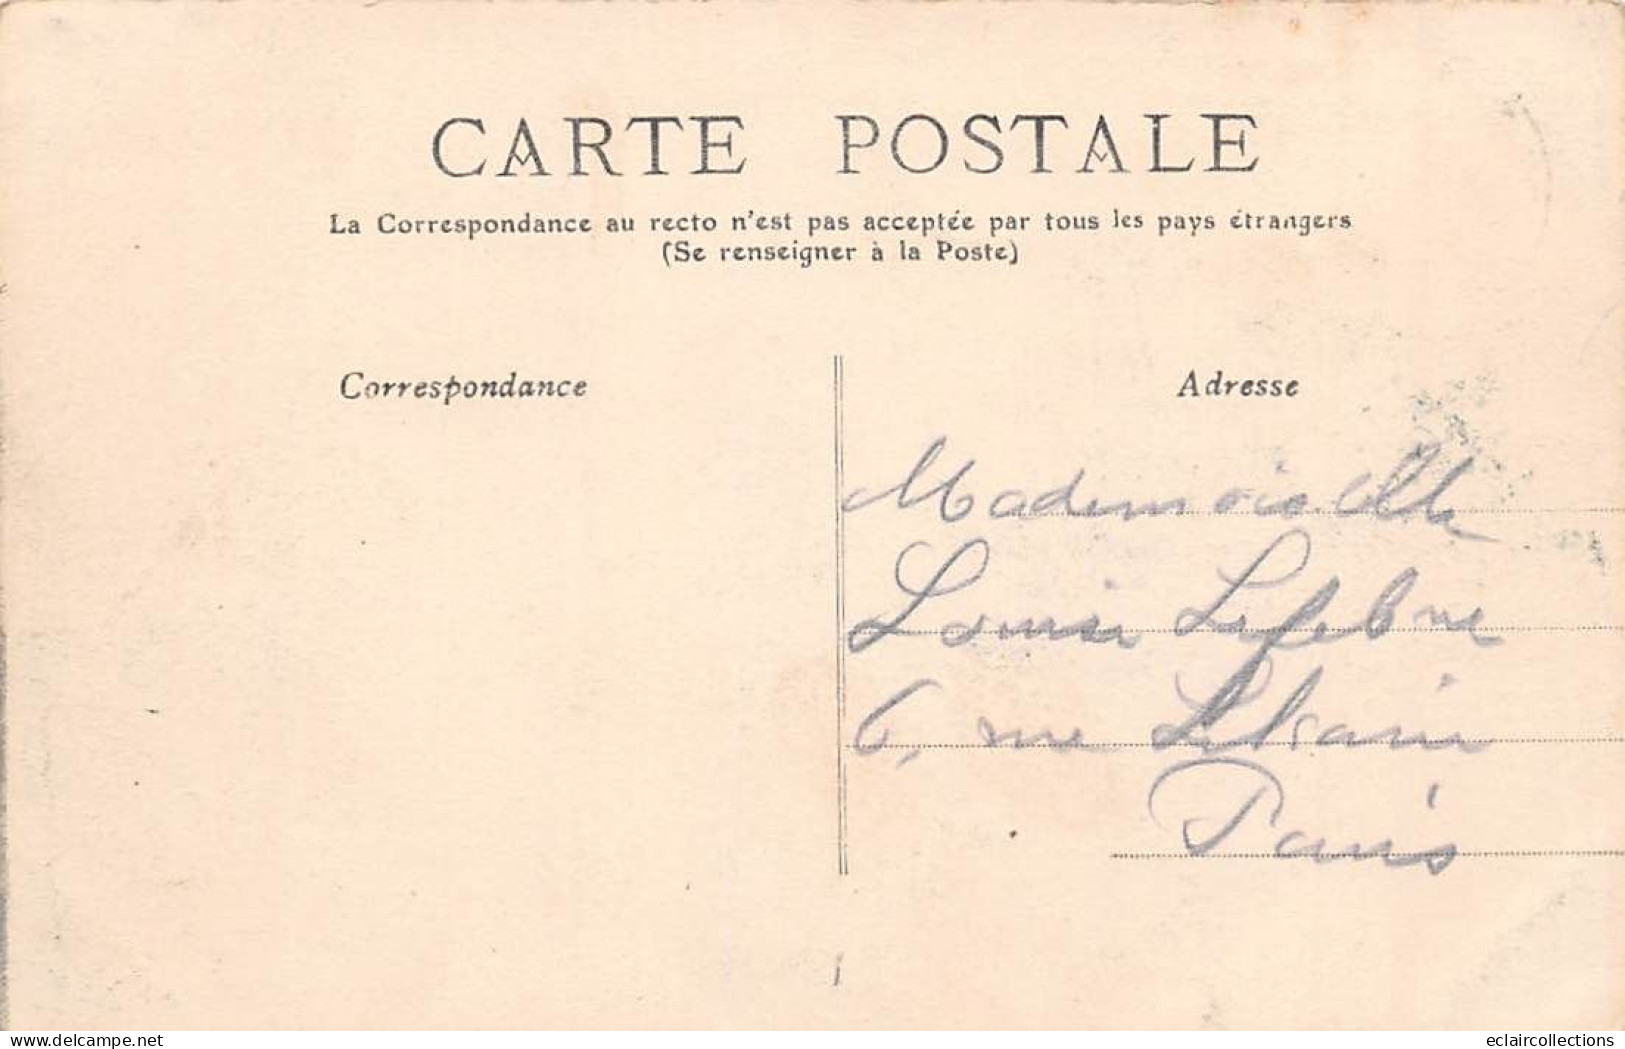 CARTE POSTALE
La Correspondance au recto n'est pas acceptée par tous les pays étrangers
(Se renseigner à la Poste)
Correspondance
Adresse
Mademoiselle
Louise Lefebvre
6, rue
Paris
delcampe.net
eclaircollections